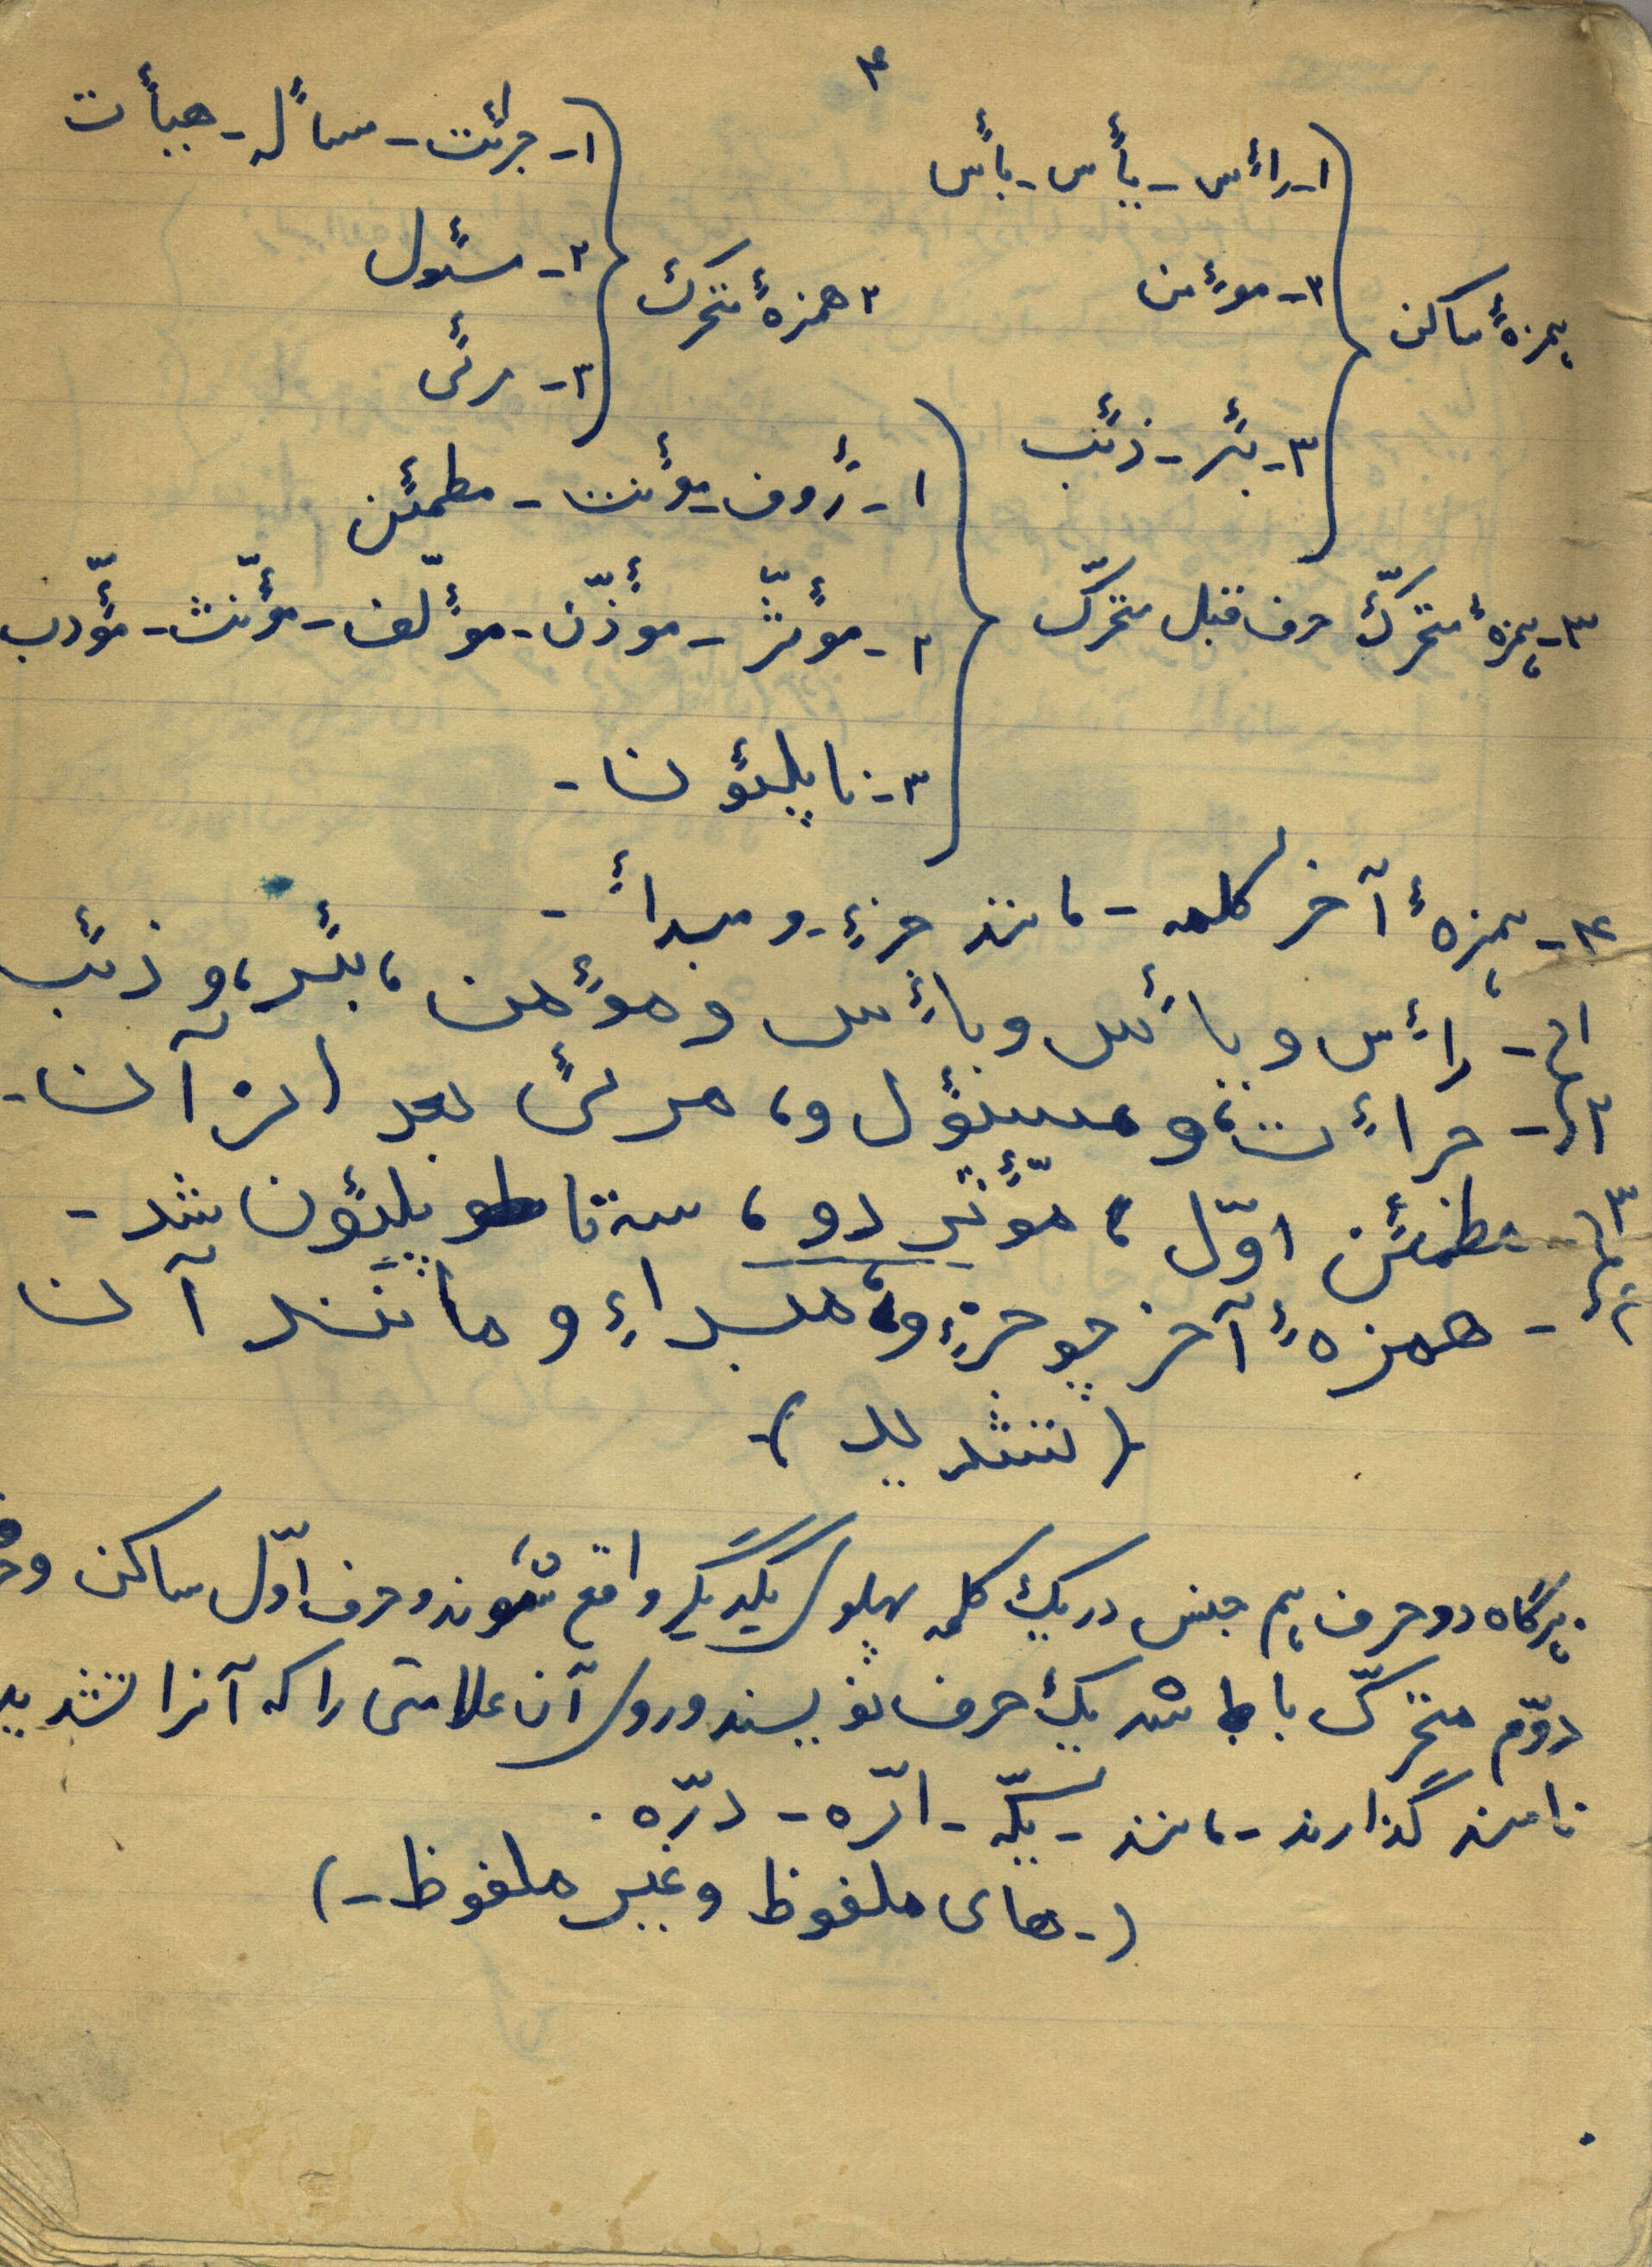 ۴
همزهٔ ساکن
۱- رأس - یأس - بأس
۲- مؤمن
۳- بئر - ذئب
۲ همزهٔ متحرک
۱- جرئت - مسأله - هیأت
۲- مسئول
۳- مرئی
۳- همزهٔ متحرّک حرف قبل متحرّک
۱- رؤوف - مؤنث - مطمئن
۲- مؤثّر - مؤذّن - مؤلّف - مؤنّث - مؤدّب
۳- ناپلئون -
۴- همزهٔ آخر کلمه - مانند جزء - و مبدأ -
۱- رأس و یأس و بأس و مؤمن، بئر، و ذئب
۲- جرأت، و مسئول و، مرئی بعد از آن -
۳- مطمئن اوّل، مؤثّر دو، سه ناپلئون شد -
۴- همزهٔ آخر چو جزء و، مبداء و مانند آن
(تشدید) -
هرگاه دو حرف هم جنس در یک کلمه پهلوی یکدیگر واقع شوند و حرف اوّل ساکن و
دوّم متحرّک باشد یک حرف نویسند و روی آن علامتی را که آنرا تشدید
نامند گذارند - مانند - یکّه - ارّه - درّه .
(- های ملفوظ و غیر ملفوظ -)